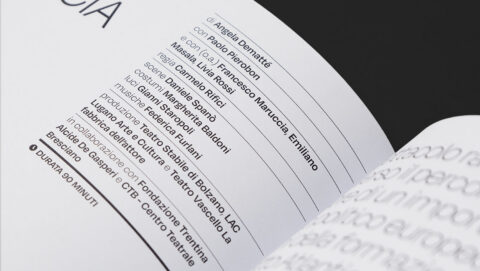 CIA
di Angela Dematté
con Paolo Pierobon
e con (o.a.) Francesco Maruccia, Emiliano
Masala, Livia Rossi
regia Carmelo Rifici
scene Daniele Spanò
costumi Margherita Baldoni
luci Gianni Staropoli
musiche Federica Furlani
produzione Teatro Stabile di Bolzano, LAC
Lugano Arte e Cultura e Teatro Vascello La
fabbrica dell'attore
in collaborazione con Fondazione Trentina
Alcide De Gasperi e CTB - Centro Teatrale
Bresciano
DURATA 90 MINUTI
politico europeo